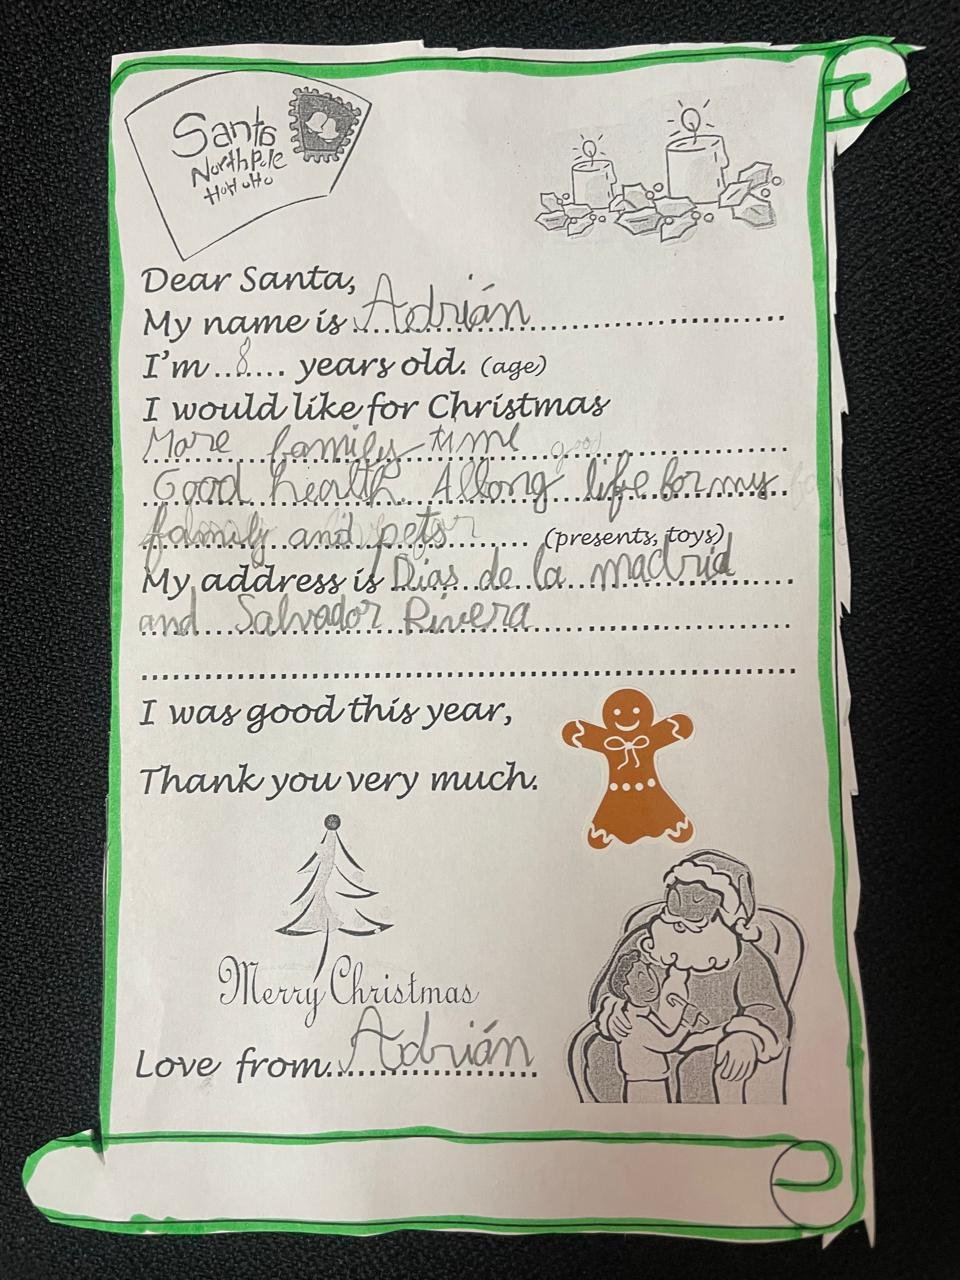 Santa
North Pole
HoHoHo
Dear Santa,
My name is Adrián
I'm 8 years old. (age)
I would like for Christmas
More family time
Good health. Allong life for my
family and pets (presents, toys)
My address is Dias de la madrid
and Salvador Rivera
I was good this year,
Thank you very much.
Merry Christmas
Love from Adrián